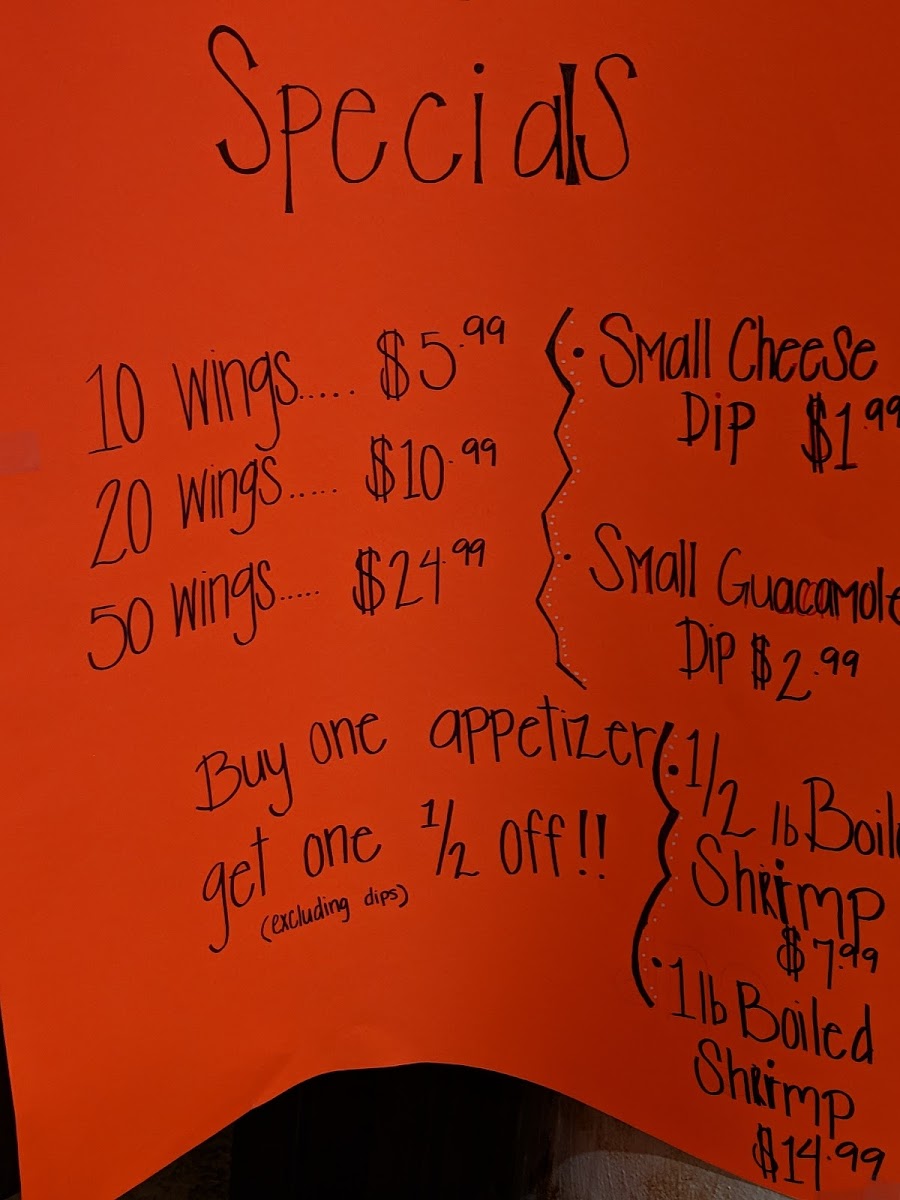 Specials
10 wings..... $5.99
20 wings..... $10.99
50 wings..... $24.99
• Small Cheese
Dip $1.99
• Small Guacamole
Dip $2.99
Buy one appetizer
get one 1/2 off!!
(excluding dips)
• 1/2 lb Boil
Shrimp
$7.99
• 1 lb Boiled
Shrimp
$14.99